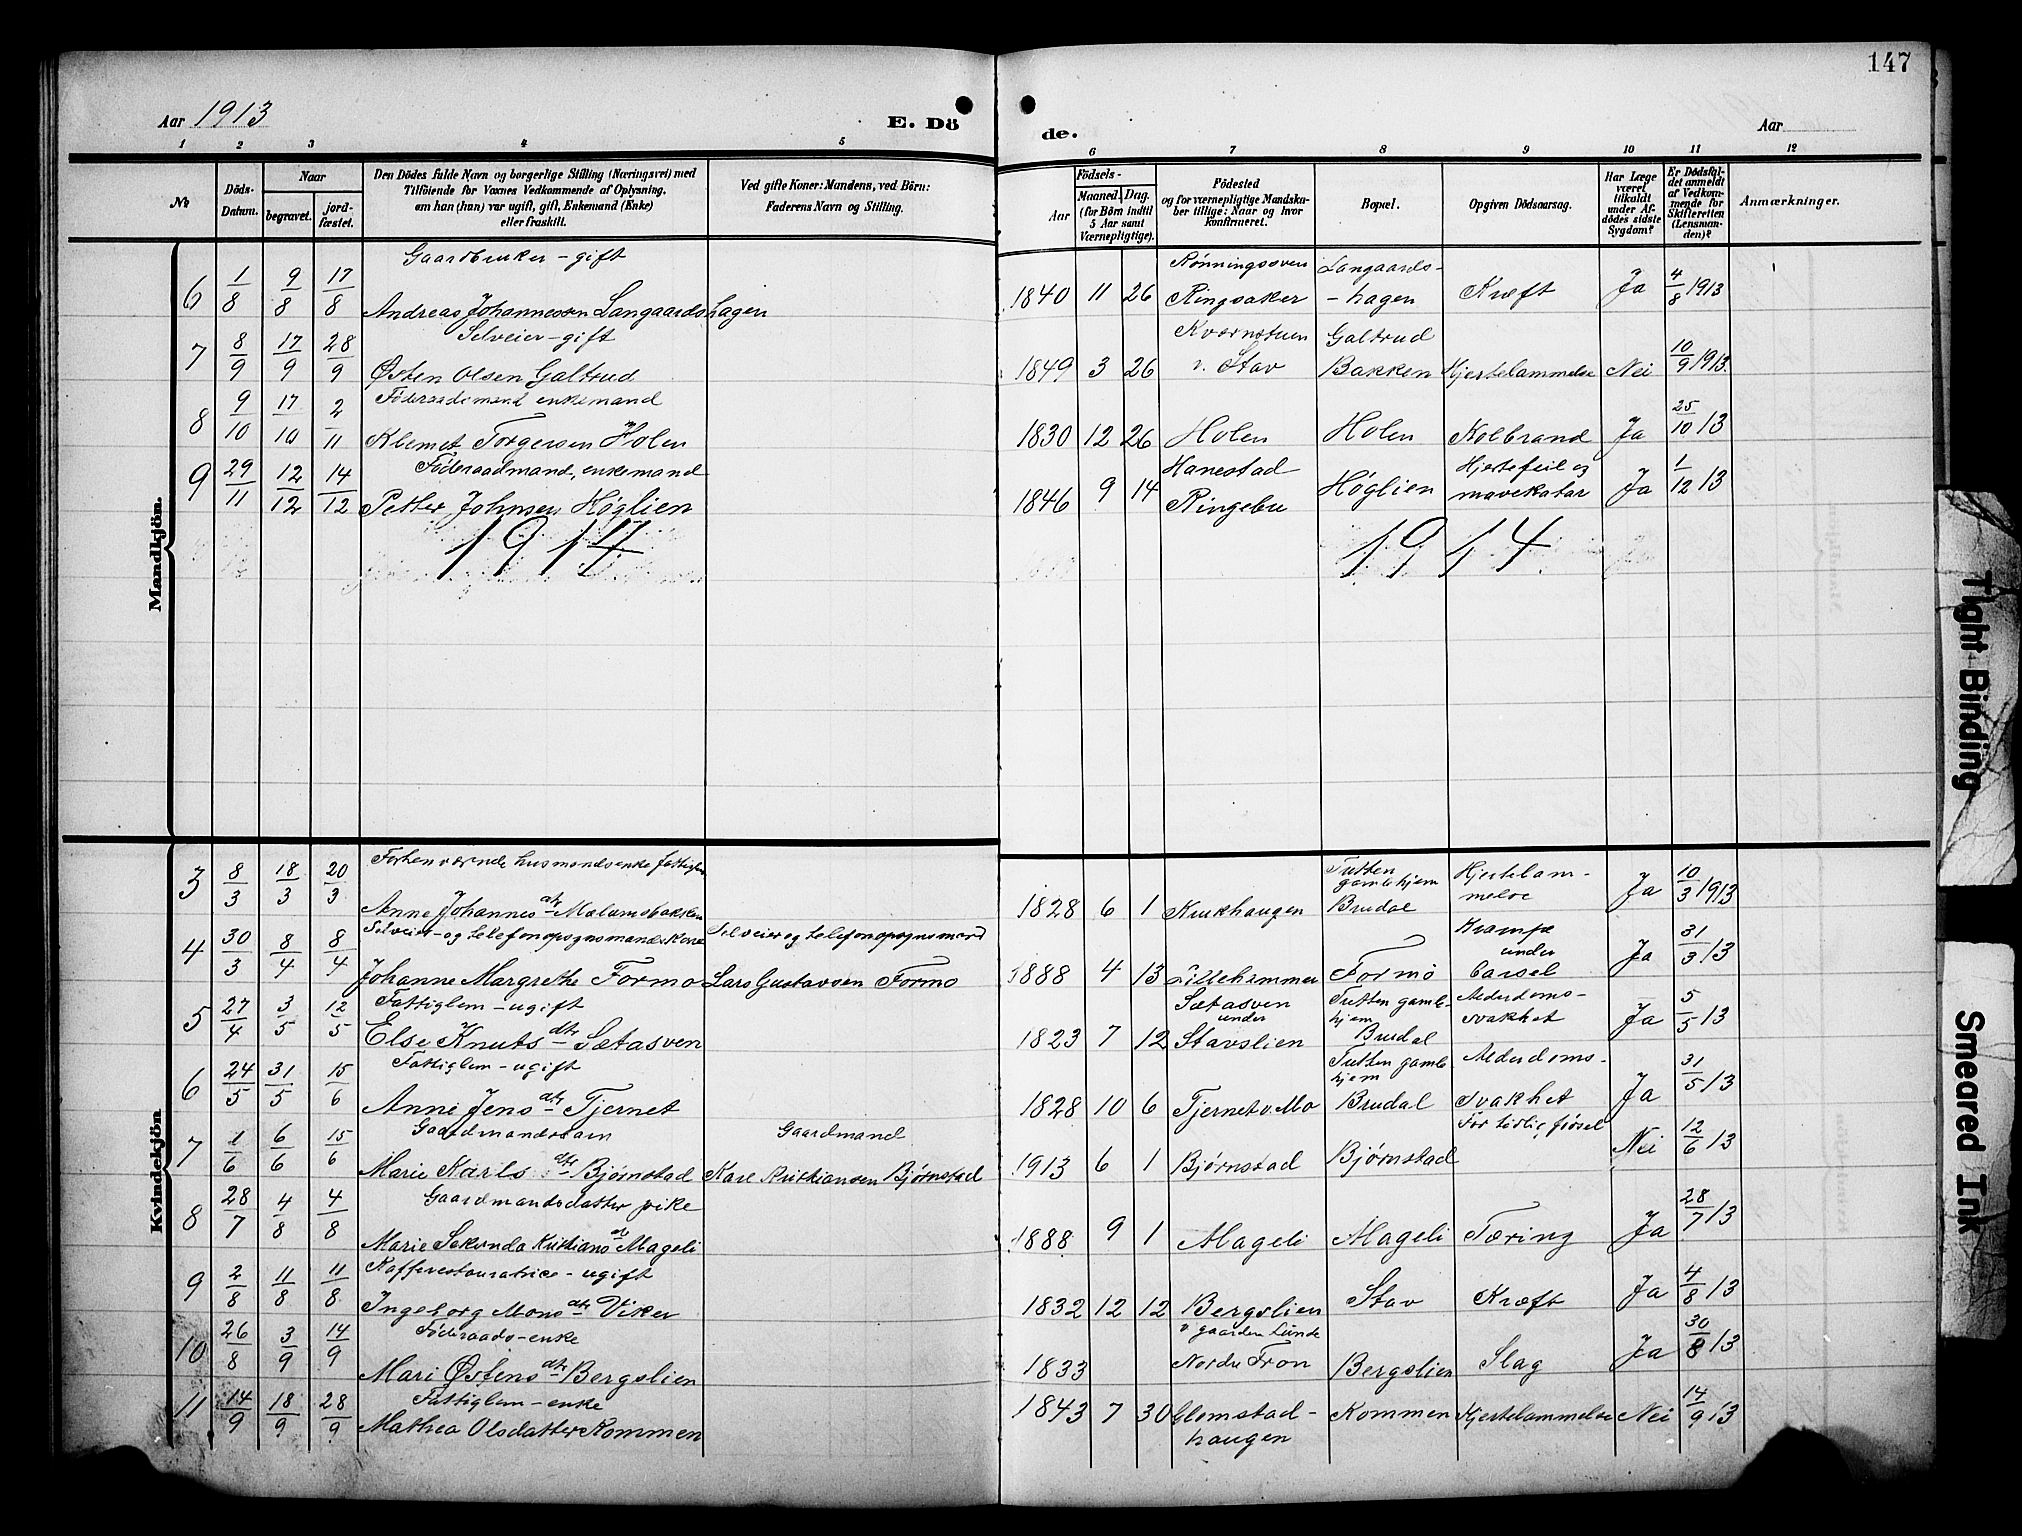 147
Aar 1913
E. Dö
de.
Aar
1 2 3 4 5 6 7 8 9 10 11 12
№
Döds-
Datum.
Naar
begravet.
jord-
fæstet.
Den Dödes fulde Navn og borgerlige Stilling (Næringsvei) med
Tilföiende for Voxnes Vedkommende af Oplysning,
om han (hun) var ugift, gift, Enkemand (Enke)
eller fraskilt.
Ved gifte Koner: Mandens, ved Börn:
Faderens Navn og Stilling.
Födsels-
Aar
Maaned. Dag.
(for Börn indtil
5 Aar samt
Værnepligtige).
Födested
og for værnepligtige Mandska-
ber tillige: Naar og hvor
konfirmeret.
Bopæl.
Opgiven Dödsaarsag.
Har Læge
været
tilkaldt
under Af-
dödes sidste
Sygdom?
Er Dödsfal-
det anmeldt
af Vedkom-
mende for
Skifteretten
(Lensman-
den)?
Anmærkninger.
Mandkjön.
Gaardbruker - gift Rønningsveen Langaards-
6 1/8 9/8 17/8 Andreas Johannessen Langaardshagen 1840 11 26 Ringsaker -hagen Kræft Ja 4/8 1913
Selveier - gift Kværnstuen Galtrud
7 8/9 17/9 28/9 Østen Olsen Galtrud 1849 3 26 v. Stav Bakken Hjertelammelse Nei 10/9 1913
Föderaadsmand enkemand
8 9/10 17/10 2/11 Klemet Torgersen Holen 1830 12 26 Holen Holen Kolbrand Ja 25/10 13
Föderaadmand, enkemand Hanestad Hjertefeil og
9 29/11 12/12 14/12 Petter Johnsen Høglien 1846 9 14 Ringebu Høglien mavekatar Ja 1/12 13
1914 1914
Kvindekjön
Forhenværende husmandsenke Tutten gamlehjem Hjertelam-
3 8/3 18/3 20/3 Anne Johannesdtr 1828 6 1 Krukhaugen Brudal melse Ja 10/3 1913
Selveier- og telefonopsynsmandskone Selveier og telefonopsynsmand Krampe under
4 30/3 8/4 8/4 Johanne Margrethe Formo Lars Gustavsen Formo 1888 4 13 Lillehammer Formo barsel Ja 31/3 13
Fattiglem - ugift Sætasven under Tutten gamle- hjem Alderdoms-
5 27/4 3/5 12/5 Else Knutsdtr Sætasven 1823 7 12 Stavslien Brudal svakhet Ja 5/5 13
Fattiglem - ugift Tutten gamle hjem Alderdoms-
6 24/5 31/5 15/6 Anne Jensdtr Tjernet 1828 10 6 Tjernet v. Mo Brudal svakhet Ja 31/5 13
Gaardmandsbarn Gaardmand For tidlig fødsel
7 1/6 6/6 15/6 Marie Karlsdtr Bjørnstad Karl Kristiansen Bjørnstad 1913 6 1 Bjørnstad Bjørnstad Nei 12/6 13
Gaardmandsdatter pike
8 28/7 4/8 4/8 Marie Sekunda Kristiansdtr Mageli 1888 9 1 Mageli Mageli Tæring Ja 28/7 13
Kafferestauratrice - ugift
9 2/8 11/8 11/8 Ingeborg Monsdtr Viker 1832 12 12 Bergslien Stav Kræft Ja 4/8 13
Föderaads-enke v gaarden Lunde
10 26/8 3/9 14/9 Mari Østensdtr Bergslien 1833 Nordre Fron Bergslien Slag Ja 30/8 13
Fattiglem - enke
11 14/9 18/9 28/9 Mathea Olsdatter Kommen 1843 7 30 Glomstad- Kommen Hjertelammelse Nei 14/9 13
haugen
Tight Binding
Smeared Ink